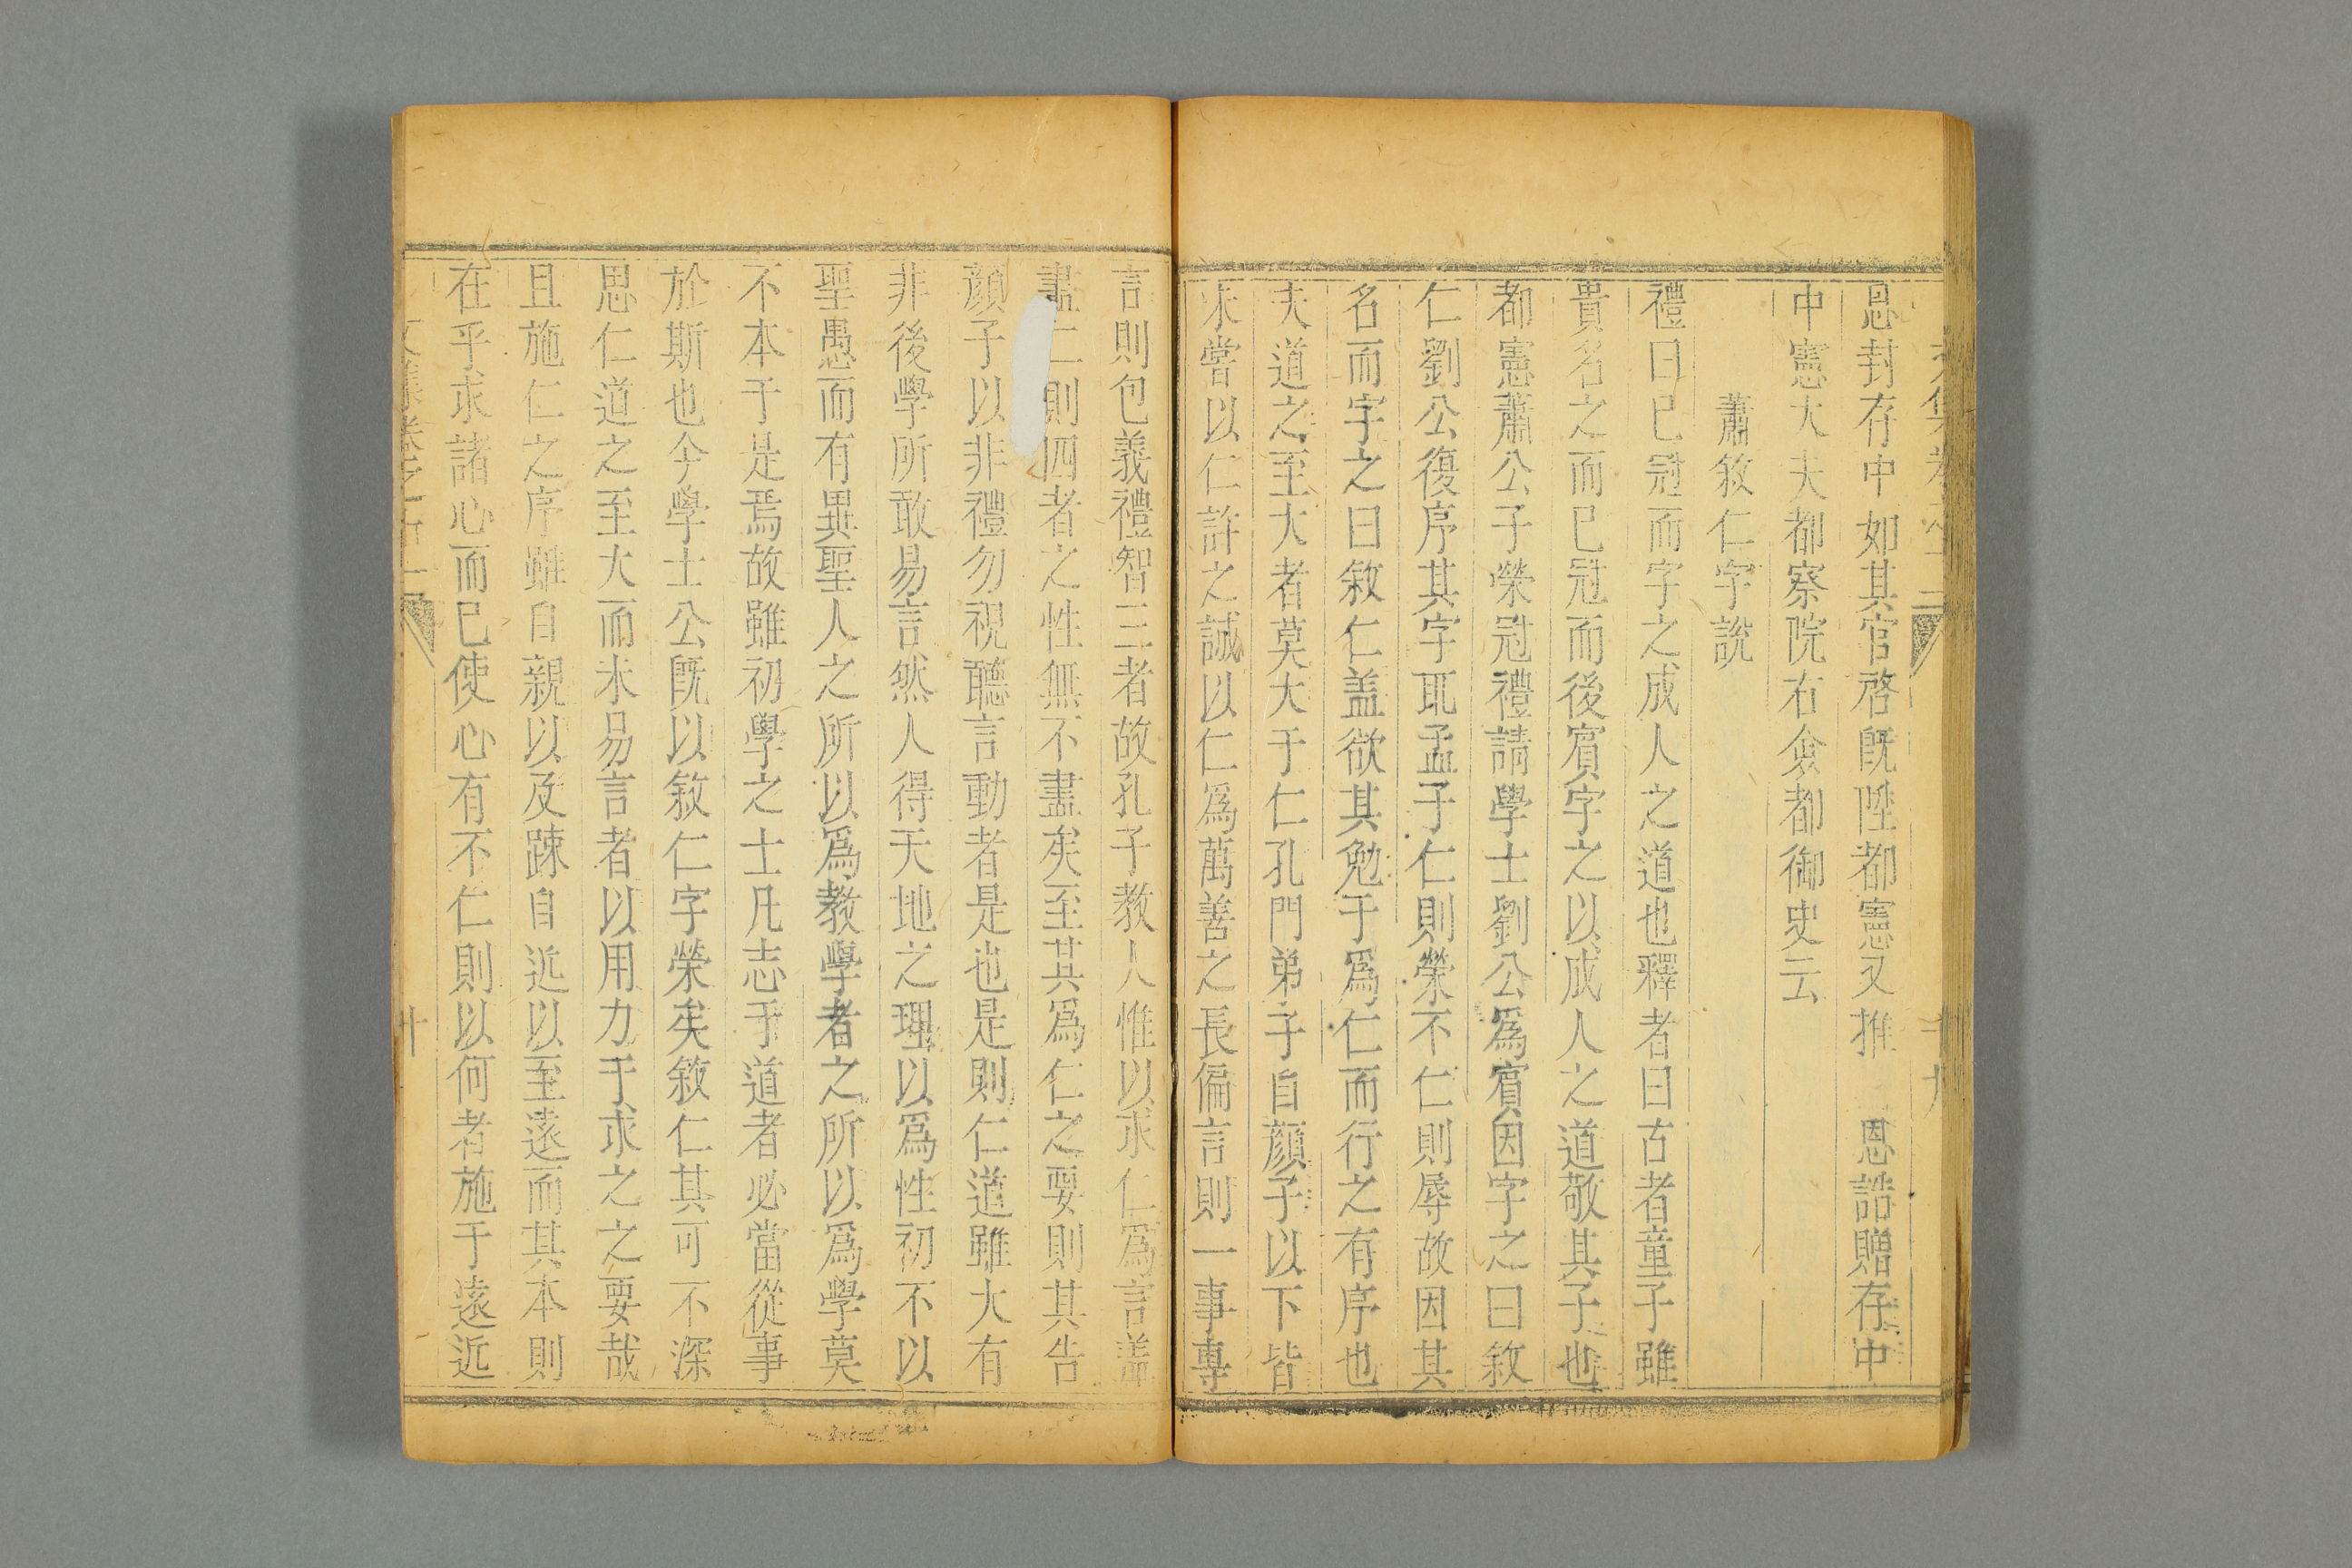 恩封存中如其官啓旣陞都憲又推恩誥贈存中
中憲大夫都察院右僉都御史云
蕭敘仁字說
禮曰已冠而字之成人之道也釋者曰古者童子雖
貴名之而已冠而後賓字之以成人之道敬其子也
都憲蕭公子榮冠禮請學士劉公爲賓因字之曰敘
仁劉公復序其字耴孟子仁則榮不仁則辱故因其
名而字之曰敘仁盖欲其勉于爲仁而行之有序也
夫道之至大者莫大于仁孔門弟子自顔子以下皆
未嘗以仁許之誠以仁爲萬善之長偏言則一事專
言則包義禮智三者故孔子教人惟以求仁爲言盖
盡仁則四者之性無不盡矣至其爲仁之要則其告
顔子以非禮勿視聽言動者是也是則仁道雖大有
非後學所敢易言然人得天地之理以爲性初不以
聖愚而有異聖人之所以爲教學者之所以爲學莫
不本于是焉故雖初學之士凡志于道者必當從事
於斯也今學士公旣以敘仁字榮矣敘仁其可不深
思仁道之至大而未易言者以用力于求之之要哉
且施仁之序雖自親以及踈自近以至遠而其本則
在乎求諸心而已使心有不仁則以何者施于遠近